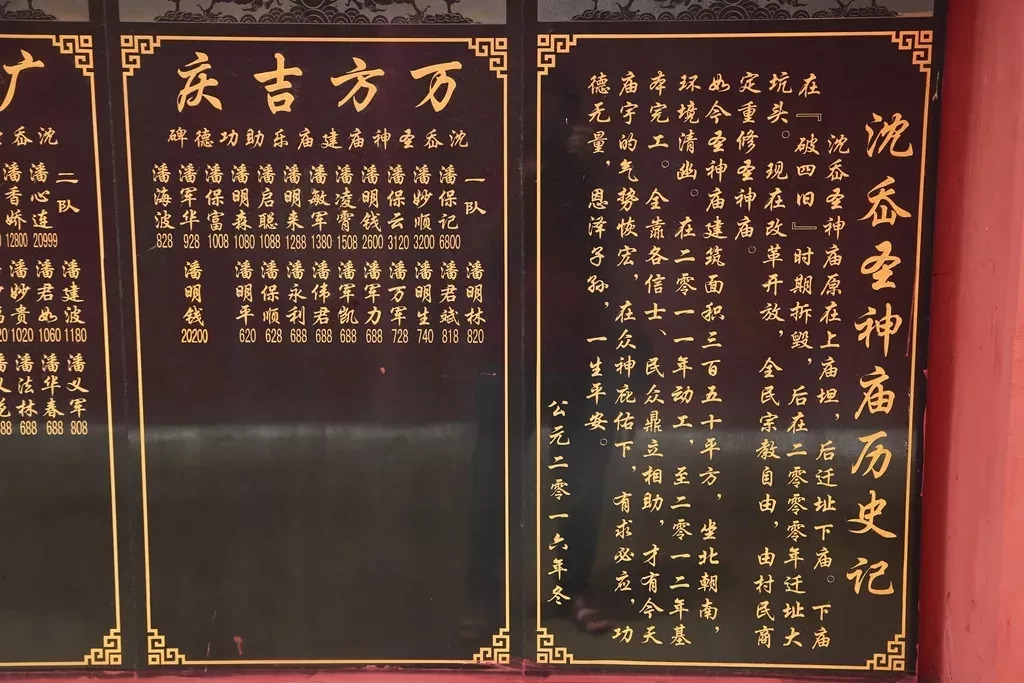 沈岙圣神庙历史记
沈岙圣神庙原在上庙坦，后迁址下庙。下庙
在『破四旧』时期拆毁，后在二零零零年迁址大
坑头。现在改革开放，全民宗教自由，由村民商
定重修圣神庙。
如今圣神庙建筑面积三百五十平方，坐北朝南，
环境清幽。在二零一一年动工，至二零一二年基
本完工。全靠各信士、民众鼎立相助，才有今天
庙宇的气势恢宏，在众神庇佑下，有求必应，功
德无量，恩泽子孙，一生平安。
公元二零一六年冬
万方吉庆
沈岙圣神庙建庙乐助功德碑
一队
潘保记 6800
潘妙顺 3200
潘保云 3120
潘明钱 2600
潘凌霄 1508
潘敏军 1380
潘明来 1288
潘启聪 1088
潘明森 1080
潘保富 1008
潘军华 928
潘海波 828
潘明林 820
潘君斌 818
潘明生 740
潘万军 728
潘军力 688
潘军凯 688
潘伟君 688
潘永利 688
潘保顺 628
潘明平 620
潘明钱 20200
广
沈岙
二队
潘心连 20999
潘香娇 12800
潘建波 1180
潘君如 1060
潘妙贵 1020
潘义军 808
潘华春 688
潘法林 688